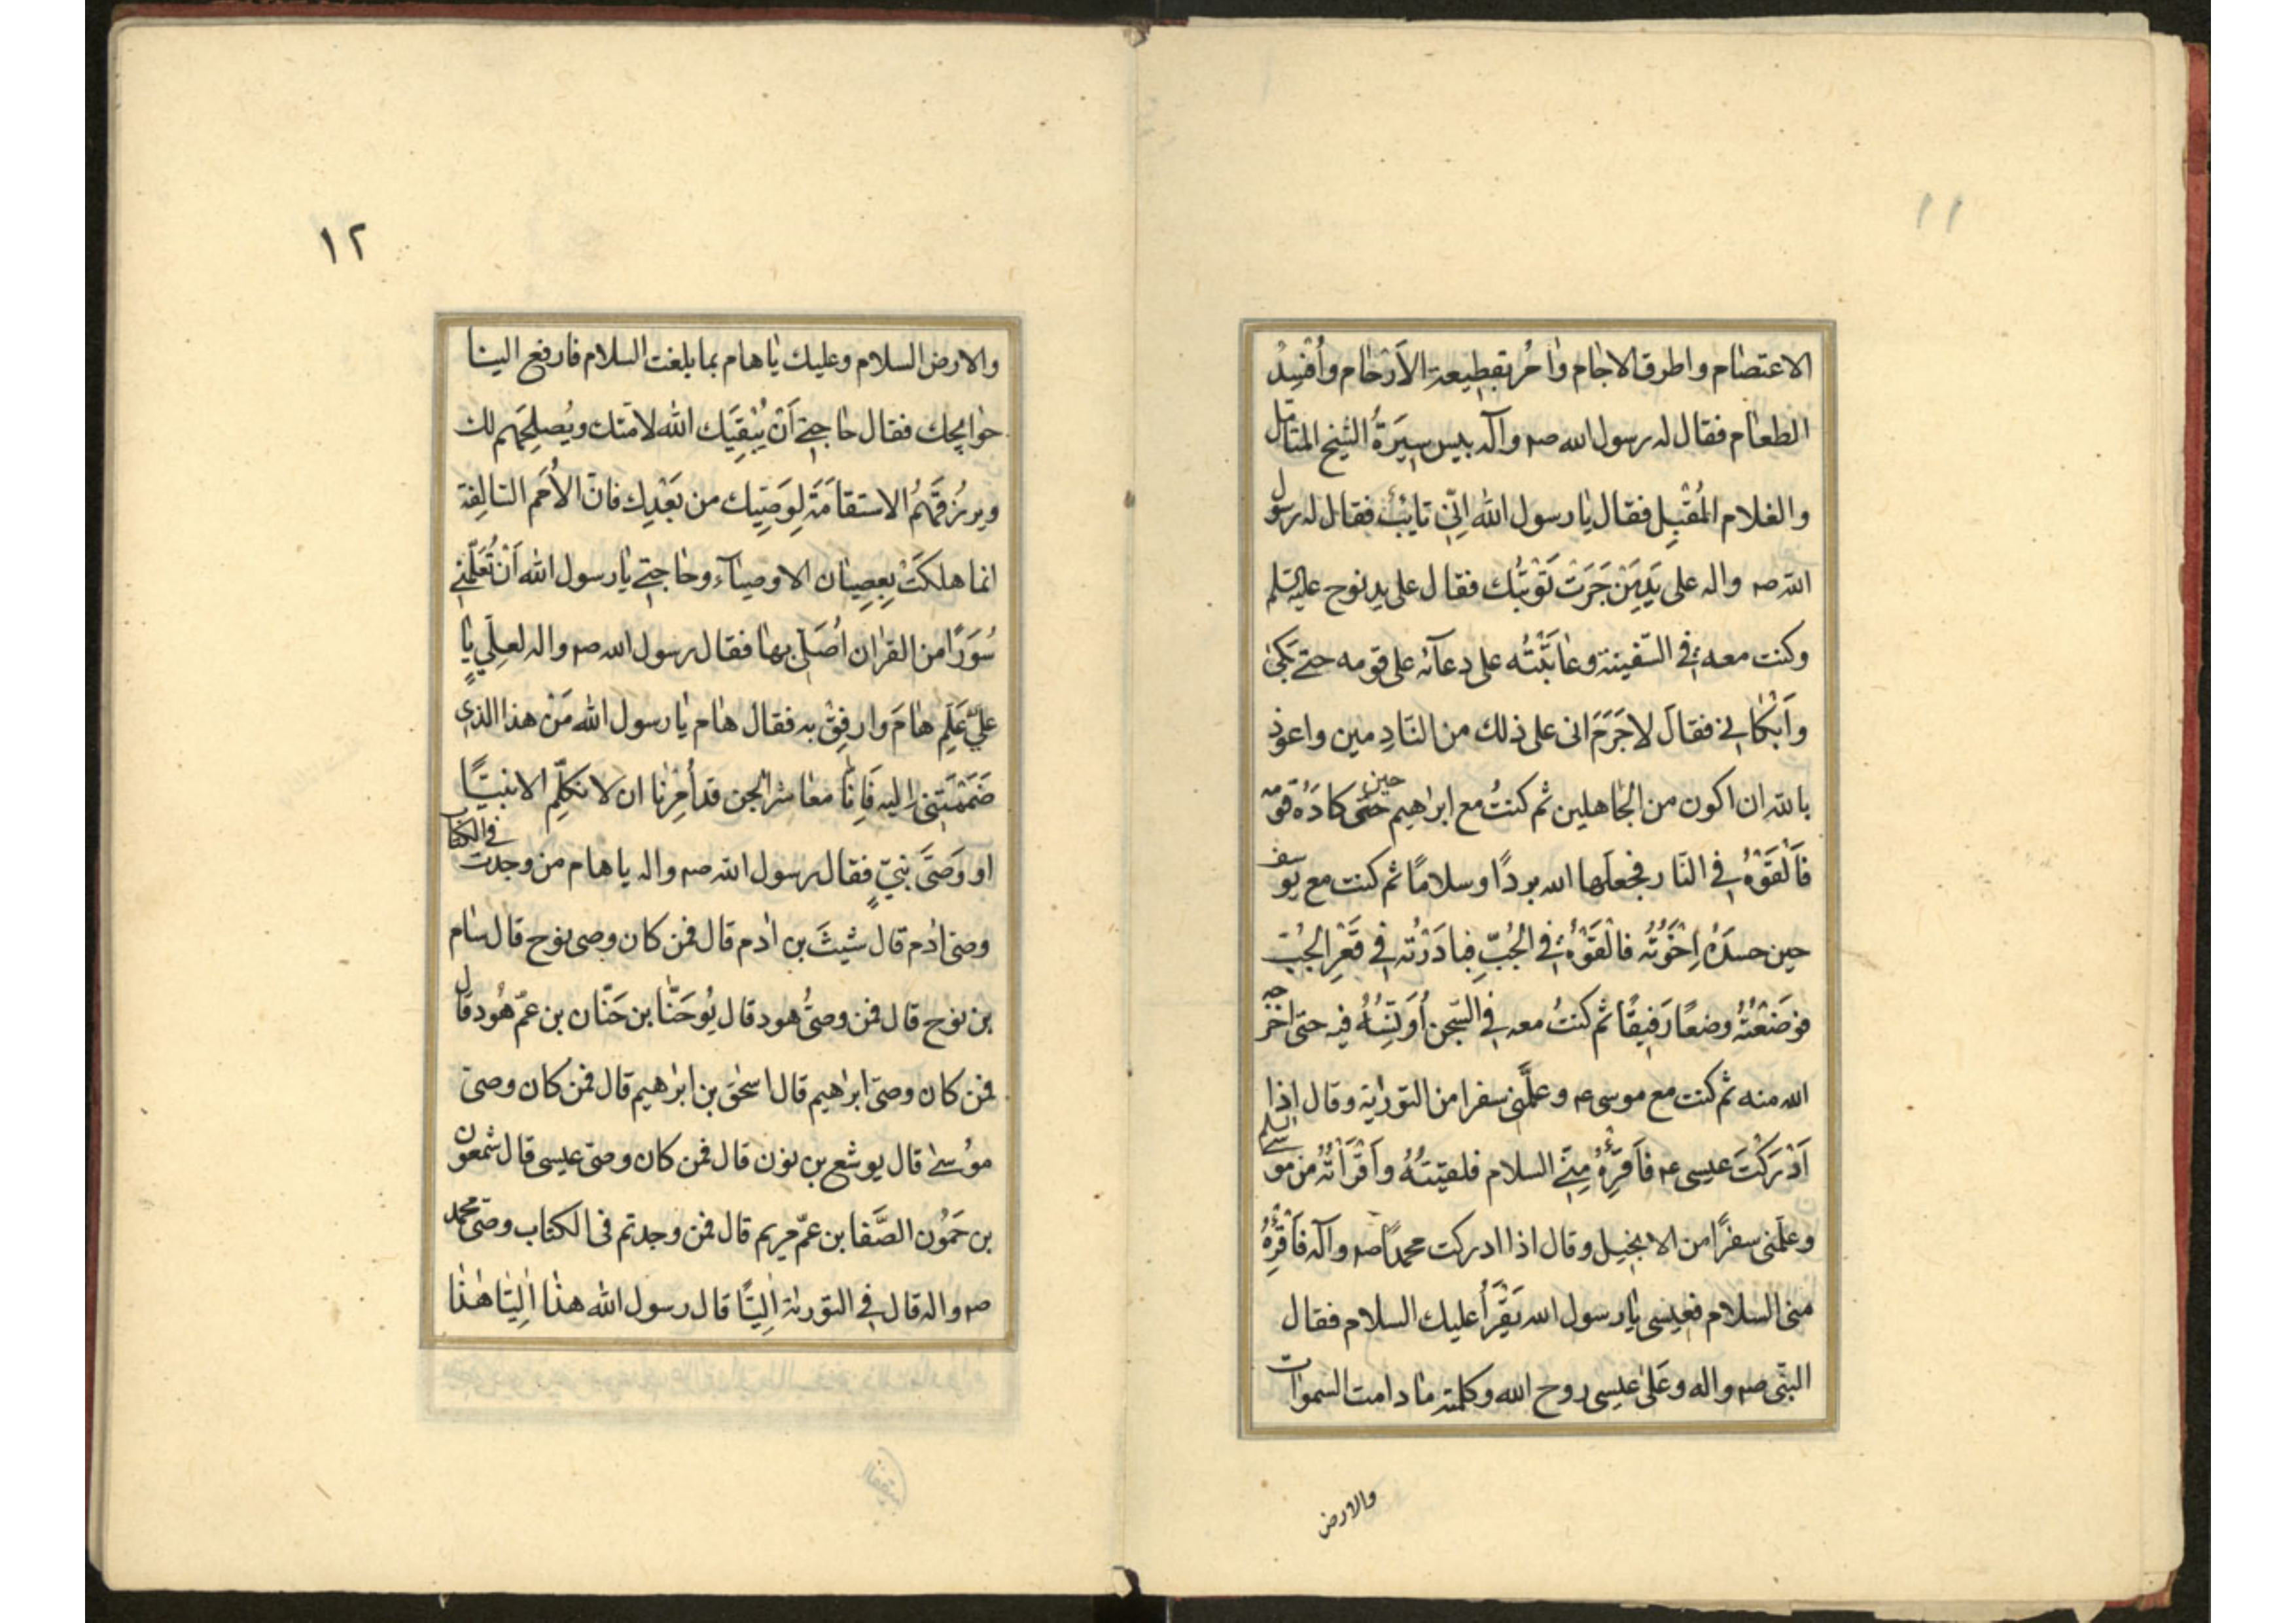 ١١
الاعتصام واطرق الاجام وامُر بقطيعة الاَرْحام وأُفْسِدُ
الطعام فقال له رسول الله صم وآله بيس سِيرَةُ الشيخ المتامل
والغلام المُقْبِل فقال يا رسول الله اِنّى تايبٌ فقال له رسول
الله صم واله على يَدِ مَنْ جَرَتْ تَوْبَتُك فقال على يد نوح عليه السلم
وكنت معه فى السّفينة وعاتَبْتُه على دعآئه على قومه حتى بَكىٰ
وأَبْكانى فقالَ لا جَرَمَ انى على ذلك من النّادِمين واعوذ
بالله ان اكون من الجاهلين ثم كنتُ مع ابراهيم حين كادَهُ قومه
فاَلْقَوْهُ فى النّار فجعلها الله بردًا وسلامًا ثم كنت مع يوسف
حين حسدَهُ اِخْوَتُه فالْقَوْهُ فى الجُبِّ فبادَرْتُه فى قَعْرِ الجُبّ
فوَضَعْتُهُ وضعًا رَفيقًا ثم كنتُ معه فى السّجن أُونِسُهُ فيه حتى اخرجه
الله منه ثم كنت مع موسى ع وعلّمنى سفرا من التورية وقال اذا
اَدْرَكْتَ عيسى ع فاَقْرِئْهُ مِنّى السلام فلقيتهُ واَقْرَأْتُهُ من موسى السلم
وعلّمنى سفرًا من الانجيل وقال اذا ادركت محمدًا صم وآله فاَقْرِئْهُ
منى السلام فعيسى يا رسول الله يَقْرَأُ عليك السلام فقال
النبّى صم واله وعَلىٰ عيسى روح الله وكلمته ما دامت السموات
والارض
١٢
والارض السلام وعليك يا هام بما بلغت السلام فارفع الينا
حوايجك فقال حاجتى اَنْ يُبْقِيَك الله لامّتك ويُصلِحَهم لك
ويرزُقَهُمُ الاستقامَةَ لِوَصِيّك من بَعْدِك فانّ الاُمَم السّالِفة
انما هلكَتْ بِعِصيان الاوصيآء وحاجتى يا رسول الله اَنْ تُعَلّمنى
سُوَرًا من القرٰان اُصَلّى بها فقال رسول الله صم واله لعلِيّ يا
علىّ عَلِّم هامَ وارفِقْ به فقال هام يا رسول الله مَنْ هذا الذى
ضَمَمْتَنى اليه فَاِنّا معاشر الجن قد اُمِرْنا ان لا نكلّم الا نبيًّا
او وَصىَّ نبىٍّ فقال رسول الله صم واله يا هام من وجدت فى الكتاب
وصىّ اٰدم قال شيثَ بن اٰدم قال فمن كان وصى نوح قال سام
بن نوح قال فمن وصىُّ هود قال يُوحَنّا بن حَنّان بن عمّ هُود قال
فمن كان وصىّ ابرٰهيم قال اسحٰق بن ابرٰهيم قال فمن كان وصىّ
موُسىٰ قال يوشع بن نون قال فمن كان وصىّ عيسى قال شمعون
بن حَمّوُن الصَّفا بن عمّ مريم قال فمن وجدتم فى الكتاب وصىّ محمد
صم واله قال فى التورية اِليّا قال رسول الله هذا اِليّا هٰذا